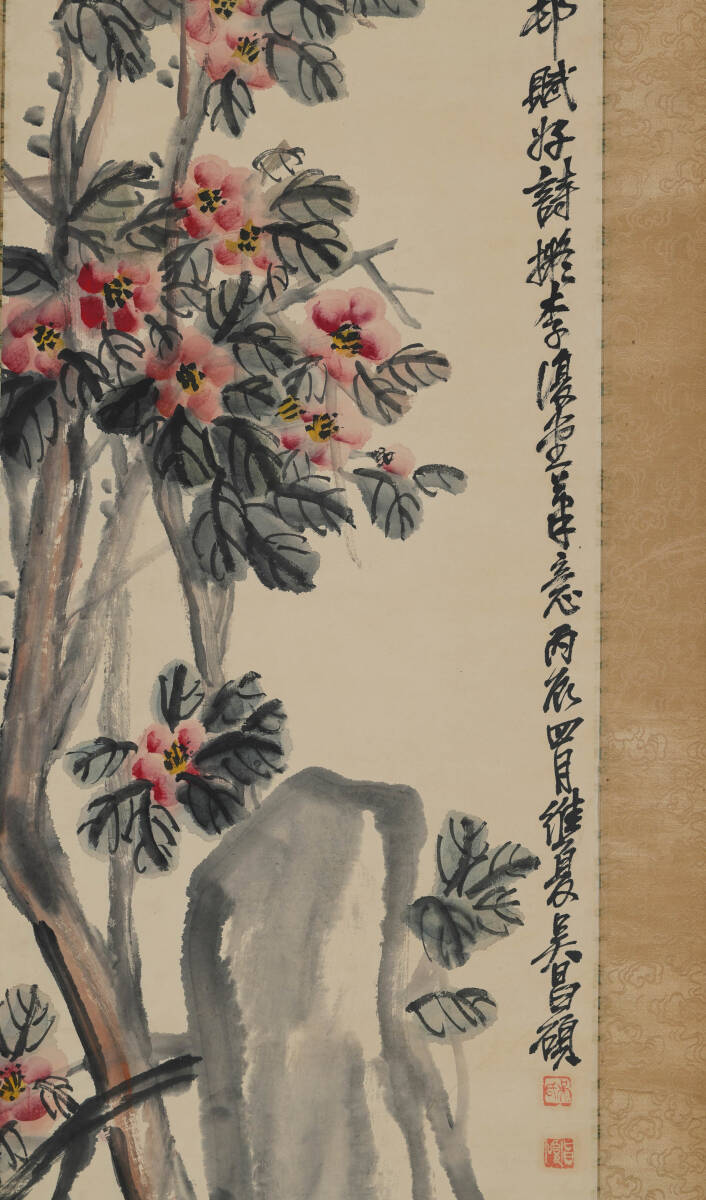 邨賦好詩擬李復堂筆意丙辰四月維夏吳昌碩